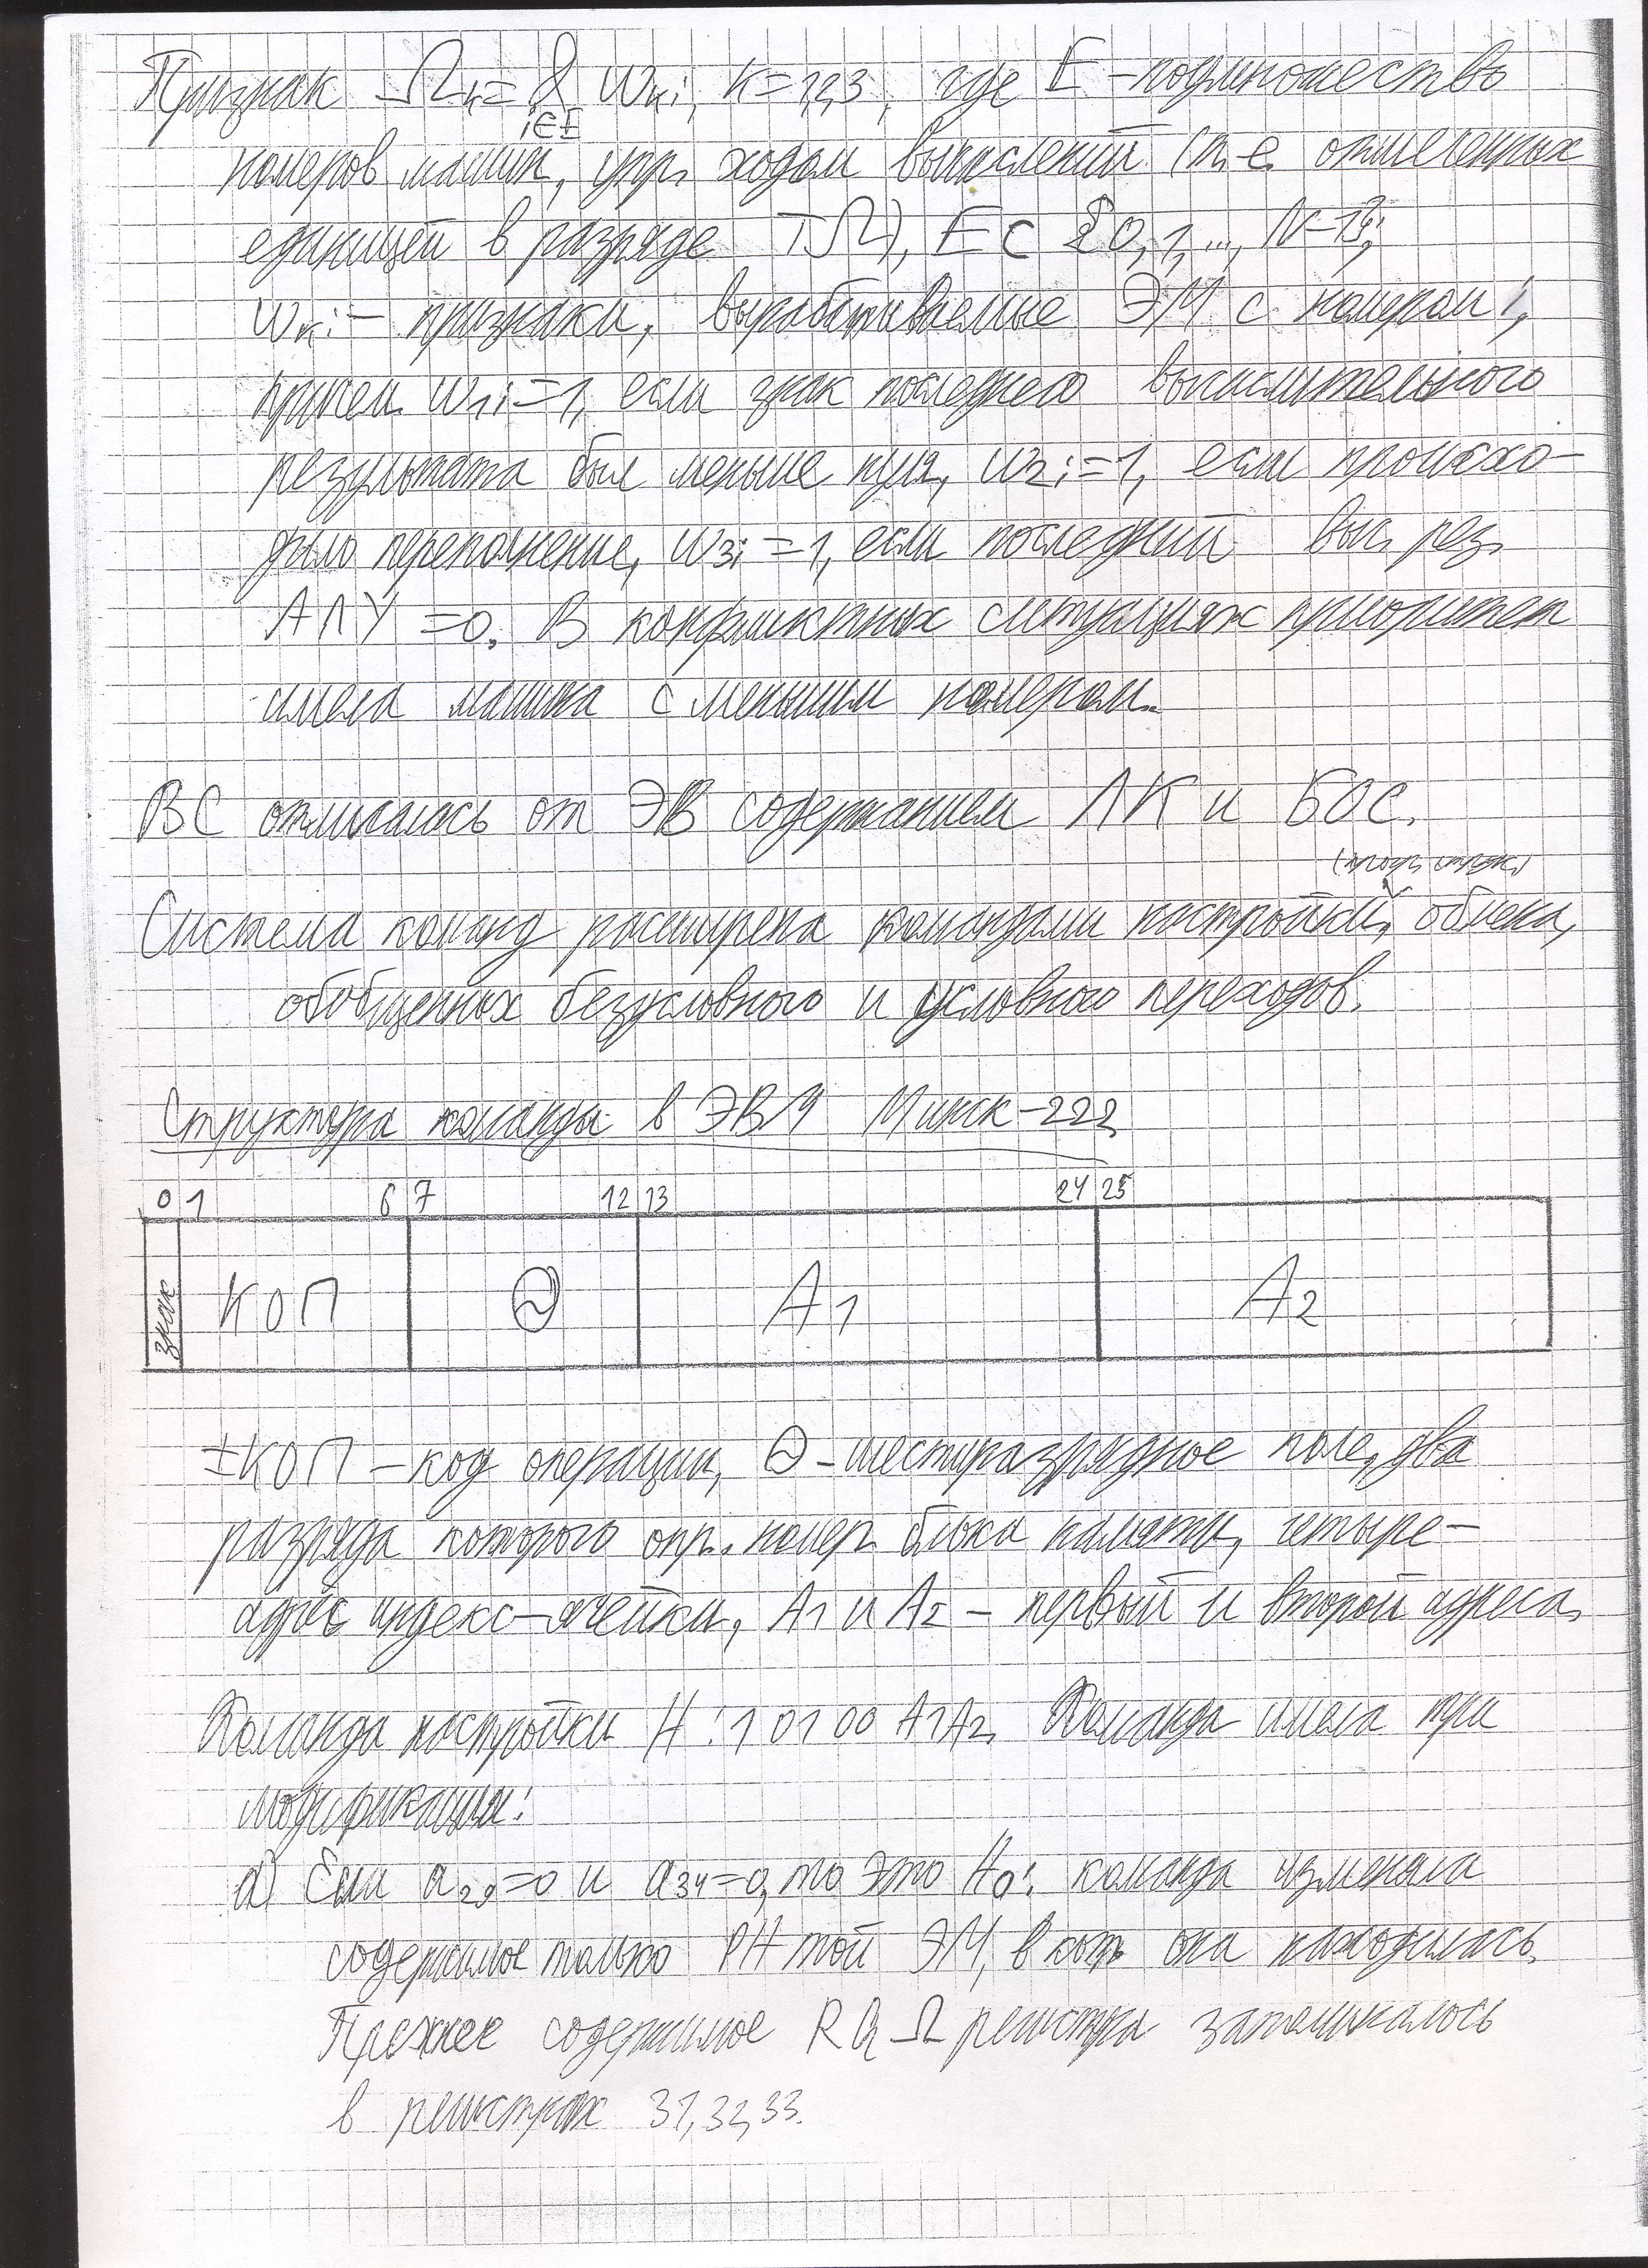 Признак Ωk = & ωki, k=1,2,3, где E - подмножество
i∈E
номеров машин, упр. ходом вычислений (т.е. отмеченных
единицей в разряде TΩ), E ⊂ {0, 1, ..., N-1};
ωki - признаки, вырабатываемые ЭМ с номером i,
причем ω1i=1, если знак последнего вычислительного
результата был меньше нуля, ω2i=1, если происхо-
дило переполнение, ω3i=1, если последний выч. рез.
АЛУ =0. В конфликтных ситуациях приоритет
имела машина с меньшим номером.
ВС отличалось от ЭВ содержанием ЛК и БОС.
Система команд расширена командами настройки, обмена,
обобщенных безусловного и условного переходов.
Структура команды в ЭВМ Минск-222
0 1 6 7 12 13 24 25
знак КОП Θ A1 A2
±КОП - код операции, Θ - шестиразрядное поле, два
разряда которого опр. номер блока памяти, четыре -
адрес индекс-ячейки, A1 и A2 - первый и второй адреса.
Команда настройки H: 1 01 00 A1A2. Команда имела три
модификации:
а) Если a29=0 и a34=0, то это H0: команда изменяла
содержимое только РН той ЭМ, в кот. она находилась.
Прежнее содержимое R Q Ω регистра запоминалось
в регистрах 31, 32, 33.